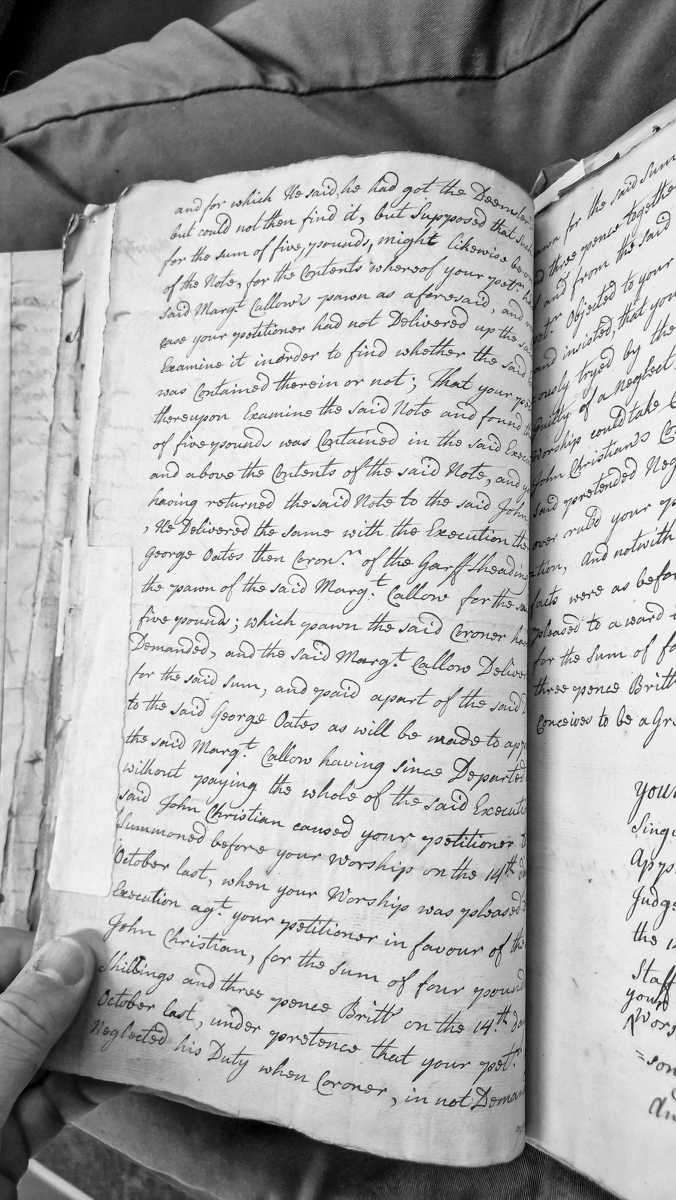 and for which He said, he had got the Deemster
but could not then find it, but Supposed that
for the sum of five pounds, might likewise be
of the Note, for the Contents whereof your petr. had
said Margt. Callow's pawn as aforesaid, and
case your petitioner had not Delivered up the
Examine it inorder to find whether the said
was Contained therein or not; That your
thereupon Examine the said Note and found
of five pounds was Contained in the said Exec
and above the Contents of the said Note, and
having returned the said Note to the said John
, He Delivered the same with the Execution
George Oates then Coronr. of the Garff Sheading
the pawn of the said Margt. Callow for the
five pound; which pawn the said Coroner
Demanded, and the said Margt. Callow Deliver
for the said sum, and paid apart of the said
to the said George Oates as will be made to app
the said Margt. Callow having since Departed
without paying the whole of the said Executi
said John Christian caused your petitioner
Summoned before your worship on the 14th
October last, when your Worship was pleased
Execution agt. your petitioner in favour of the
John Christian, for the sum of four pound
Shillings and three pence Britt. on the 14th
October last, under pretence that your petr.
Neglected his Duty when Coroner, in not Deman
for the said Sum
three pence together
and from the said
Objected to your
and insisted, that you
ously tryed by the
Guilty of a neglect
Worship could take
John Christian's
said pretended Neg
over ruld your
tion, And notwith
facts were as befor
pleased to award
for the sum of fo
three pence Britt
Conceives to be a Gr
your
Singu
App
Judge
the
Staf
your
Wors
=son